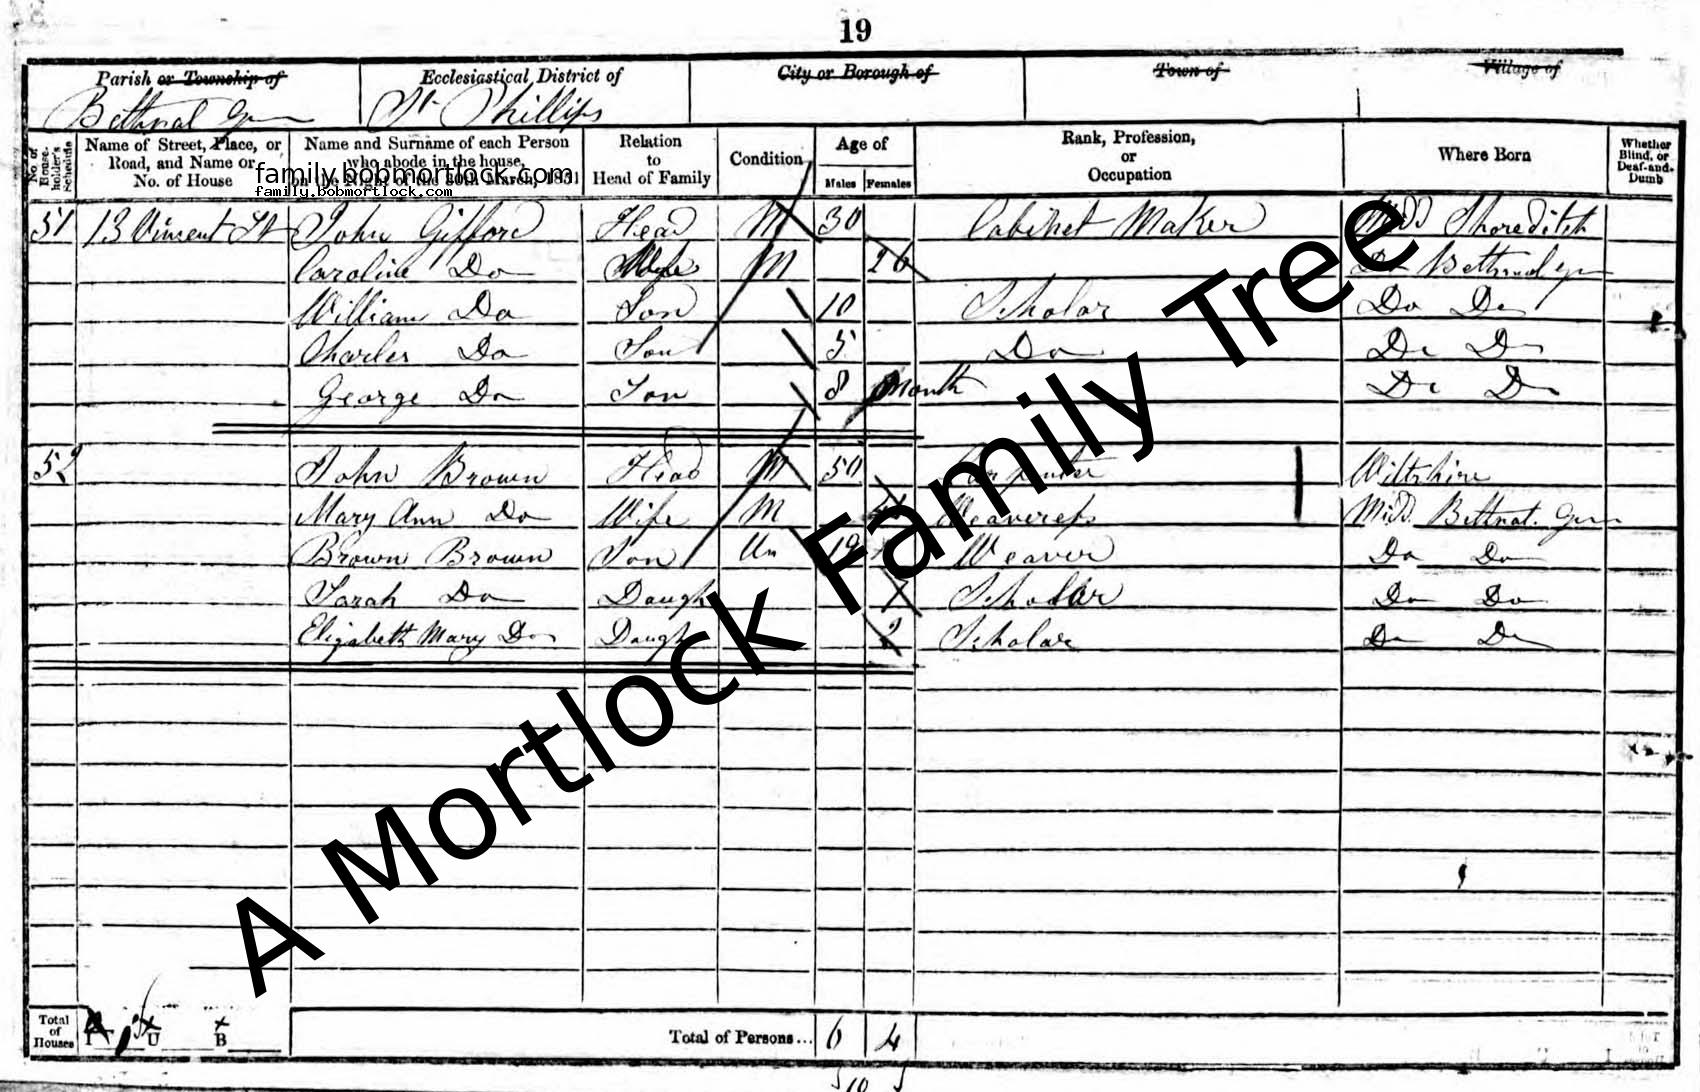 19
Parish or Township of
Ecclesiastical District of
City or Borough of
Town of
Village of
Bethnal Grn
St Phillips
No. of House-holder's Schedule
Name of Street, Place, or Road, and Name or No. of House
Name and Surname of each Person who abode in the house, on the Night of the 30th March, 1851
Relation to Head of Family
Condition
Age of
Males
Females
Rank, Profession, or Occupation
Where Born
Whether Blind, or Deaf-and-Dumb
family.bobmortlock.com
family.bobmortlock.com
51 13 Vincent St John Gifford Head M 30 Cabinet Maker Midd Shoreditch
Caroline Do Wife M 26 Do Bethnal Grn
William Do Son 10 Scholar Do Do
Charles Do Son 5 Do Do Do
George Do Son 8 Month Do Do
52 John Brown Head M 50 Carpenter Wiltshire
Mary Ann Do Wife M Weaveress Midd Bethnal Grn
Brown Brown Son Un 19 Weaver Do Do
Sarah Do Daugh Scholar Do Do
Elizabeth Mary Do Daugh Scholar Do Do
A Mortlock Family Tree
Total of Houses
I U B
Total of Persons... 6 4
10